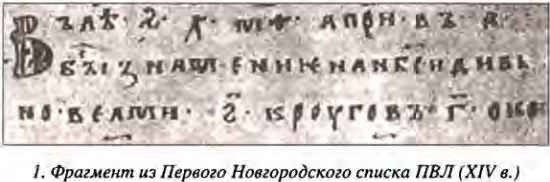 ВЪ ЛѢ· ҂Ѕ· Х· М Ѳ· АПРИ· ВЪ· А·
БЪІ ЗНАМЕНИѤ НА Н҃БСИ ДИВЬ
НО· ВЕЛМИ· Ѕ҃· КРОУГОВЪ· Г҃· ОКО
1. Фрагмент из Первого Новгородского списка ПВЛ (XIV в.)